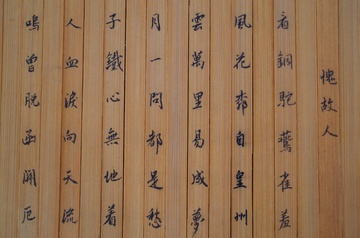 愧故人
看銅駝燕雀羞
風花自皇州
雲萬里易成夢
月一間都是愁
子鐵心無地着
人血淚向天流
鳴曾脫函關厄